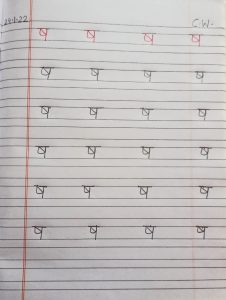 24-1-22 C.W-
ष ष ष ष
ष ष ष ष
ष ष ष ष
ष ष ष ष
ष ष ष ष
ष ष ष ष